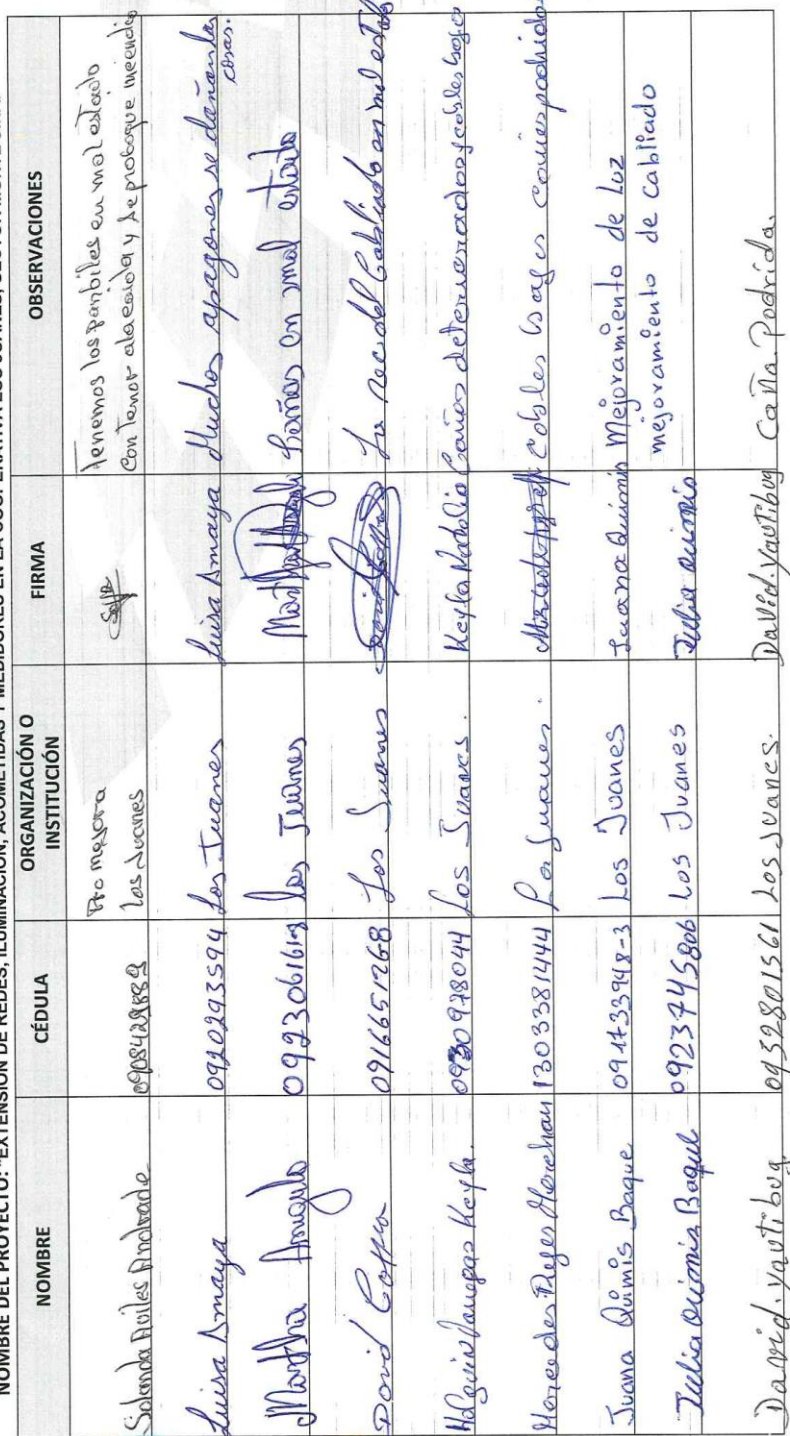 NOMBRE DEL PROYECTO: "EXTENSIÓN DE REDES, ILUMINACIÓN, ACOMETIDAS Y MEDIDORES EN LA COOPERATIVA LOS JUANES,
NOMBRE CÉDULA ORGANIZACIÓN O INSTITUCIÓN FIRMA OBSERVACIONES
Pro mejora Tenemos los panbiles en mal estado
Solanda Aviles Andrade Los Juanes con temor ala caida y se probogue incendios
Luisa Amaya 0920293594 Los Juanes Luisa Amaya Muchos apagones se dañan las
cosas.
Martha Angulo 0923061618 los Juanes Cañas en mal estado
David 0916651268 Los Juanes La red del Cabliado en mal estado
Holguin Vanegas Keyla. 0930978044 Los Juanes. Keyla Natalia Cañas deterioradas y cables bajos
Mercedes Reyes Merchan 1303381444 Los Juanes. cables bajos cañas podridas
Juana Quimis Baque 091733948-3 Los Juanes Juana Quimis Mejoramiento de Luz
Julia Quimis Baque 0923745806 Los Juanes Julia Quimis mejoramiento de cabliado
David. Yautibug. 0932801561 Los Juanes. David. Yautibug Caña. Podrida.